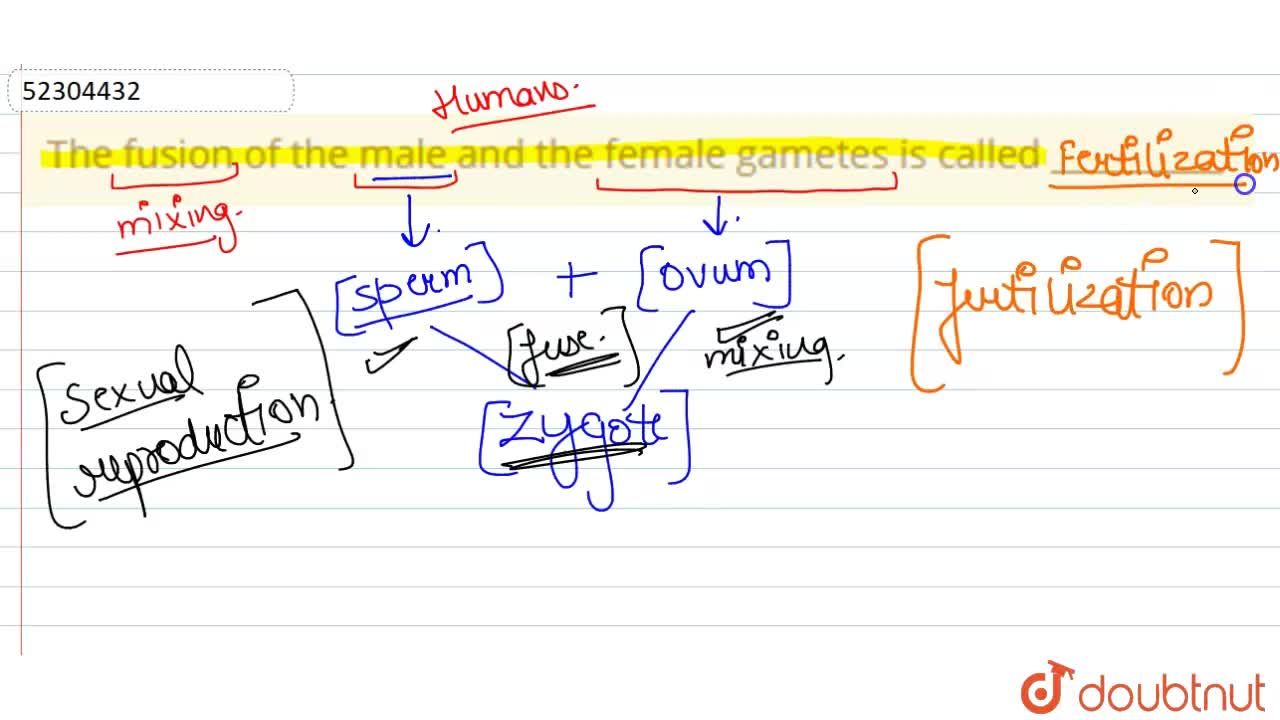 52304432
Humans.
The fusion of the male and the female gametes is called Fertilization
mixing.
[sperm] + [ovum]
[fertilization]
[fuse.]
mixing.
[sexual
reproduction]
[zygote]
doubtnut